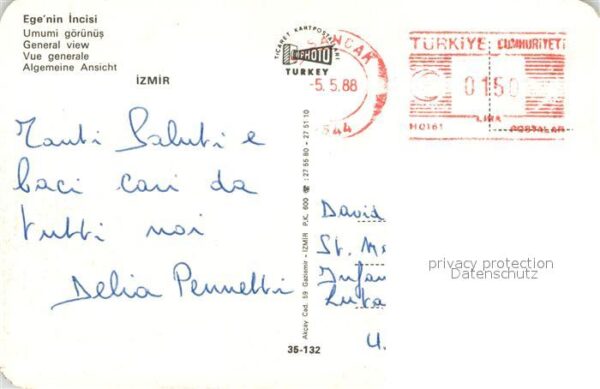 Ege'nin İncisi
Umumi görünüş
General view
Vue generale
Algemeine Ansicht
İZMİR
TICARET KARTPOSTALLARI
TURKEY
SANCAK
-5. 5. 88
TÜRKİYE CUMHURİYETİ
0150
LIRA
H0161
POSTALARI
Tanti Saluti e
baci cari da
tutti noi
Delia Pennetti
Akçay Cad. 59 Gaziemir - İZMİR P.K. 600 ☎ : 27 55 80 - 27 51 10
35-132
David
St.
privacy protection
Datenschutz